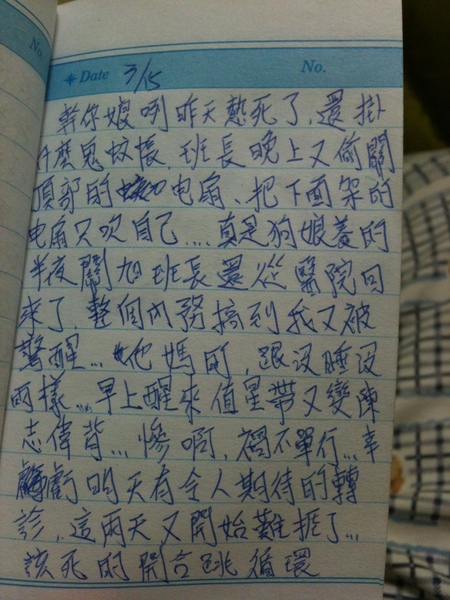 No.
Date 7/15 No.
幹你娘咧昨天熱死了,還掛
什麼鬼蚊帳.班長晚上又偷關
頂部的电扇、把下面架的
电扇只吹自己....真是狗娘養的
半夜關班長還從醫院回
來了,整個內務搞到我又被
驚醒...他媽的,跟沒睡沒
兩樣...早上醒來值星帶又變陳
志偉背...慘啊,禍不單行...幸
虧明天有令人期待的轉
診,這兩天又開始難捱了...
該死的開合跳循環